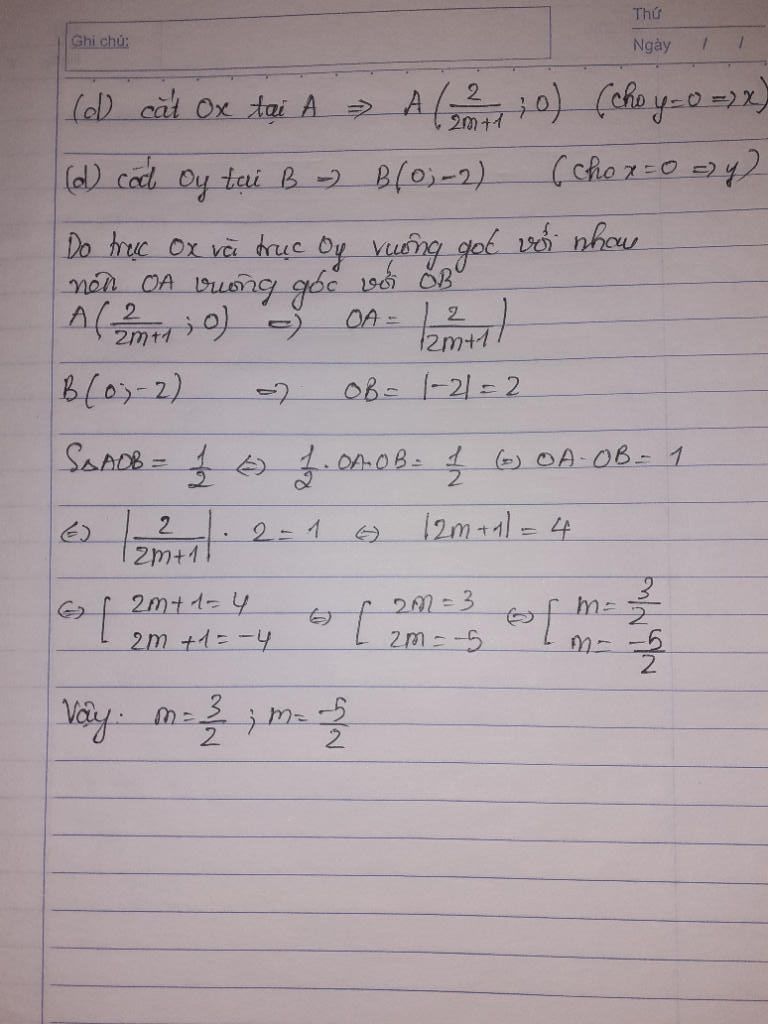 Thứ
Ghi chú:
Ngày / /
(d) cắt Ox tại A => A(2/(2m+1) ; 0) (cho y=0 => x)
(d) cắt Oy tại B => B(0;-2) (cho x=0 => y)
Do trục Ox và trục Oy vuông góc với nhau
nên OA vuông góc với OB
A(2/(2m+1) ; 0) => OA = |2/(2m+1)|
B(0;-2) => OB = |-2| = 2
S△AOB = 1/2 <=> 1/2 . OA.OB = 1/2 <=> OA.OB = 1
<=> |2/(2m+1)| . 2 = 1 <=> |2m+1| = 4
<=> [ 2m+1=4 <=> [ 2m=3 <=> [ m=3/2
2m+1=-4 2m=-5 m=-5/2
Vậy. m=3/2 ; m=-5/2